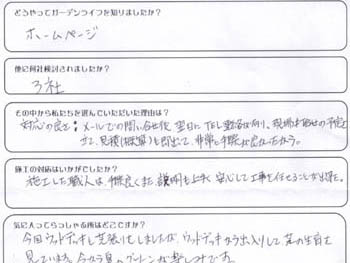 どうやってガーデンライフを知りましたか？
ホームページ
他に何社検討されましたか？
3社
その中から私たちを選んでいただいた理由は？
対応の良さ：メールでの問い合せ後、翌日にTEL連絡があり、現場打合せの予定を
立て、見積（概算）も即出て、非常に手際が良かったから。
施工の対応はいかがでしたか？
施工した職人は、手際良く、また、説明も上手く安心して工事を任せることが出来た。
気に入ってらっしゃる所はどこですか？
今回ウッドデッキと芝張りをしましたが、ウッドデッキから出入りして芝の生育を
見ています。